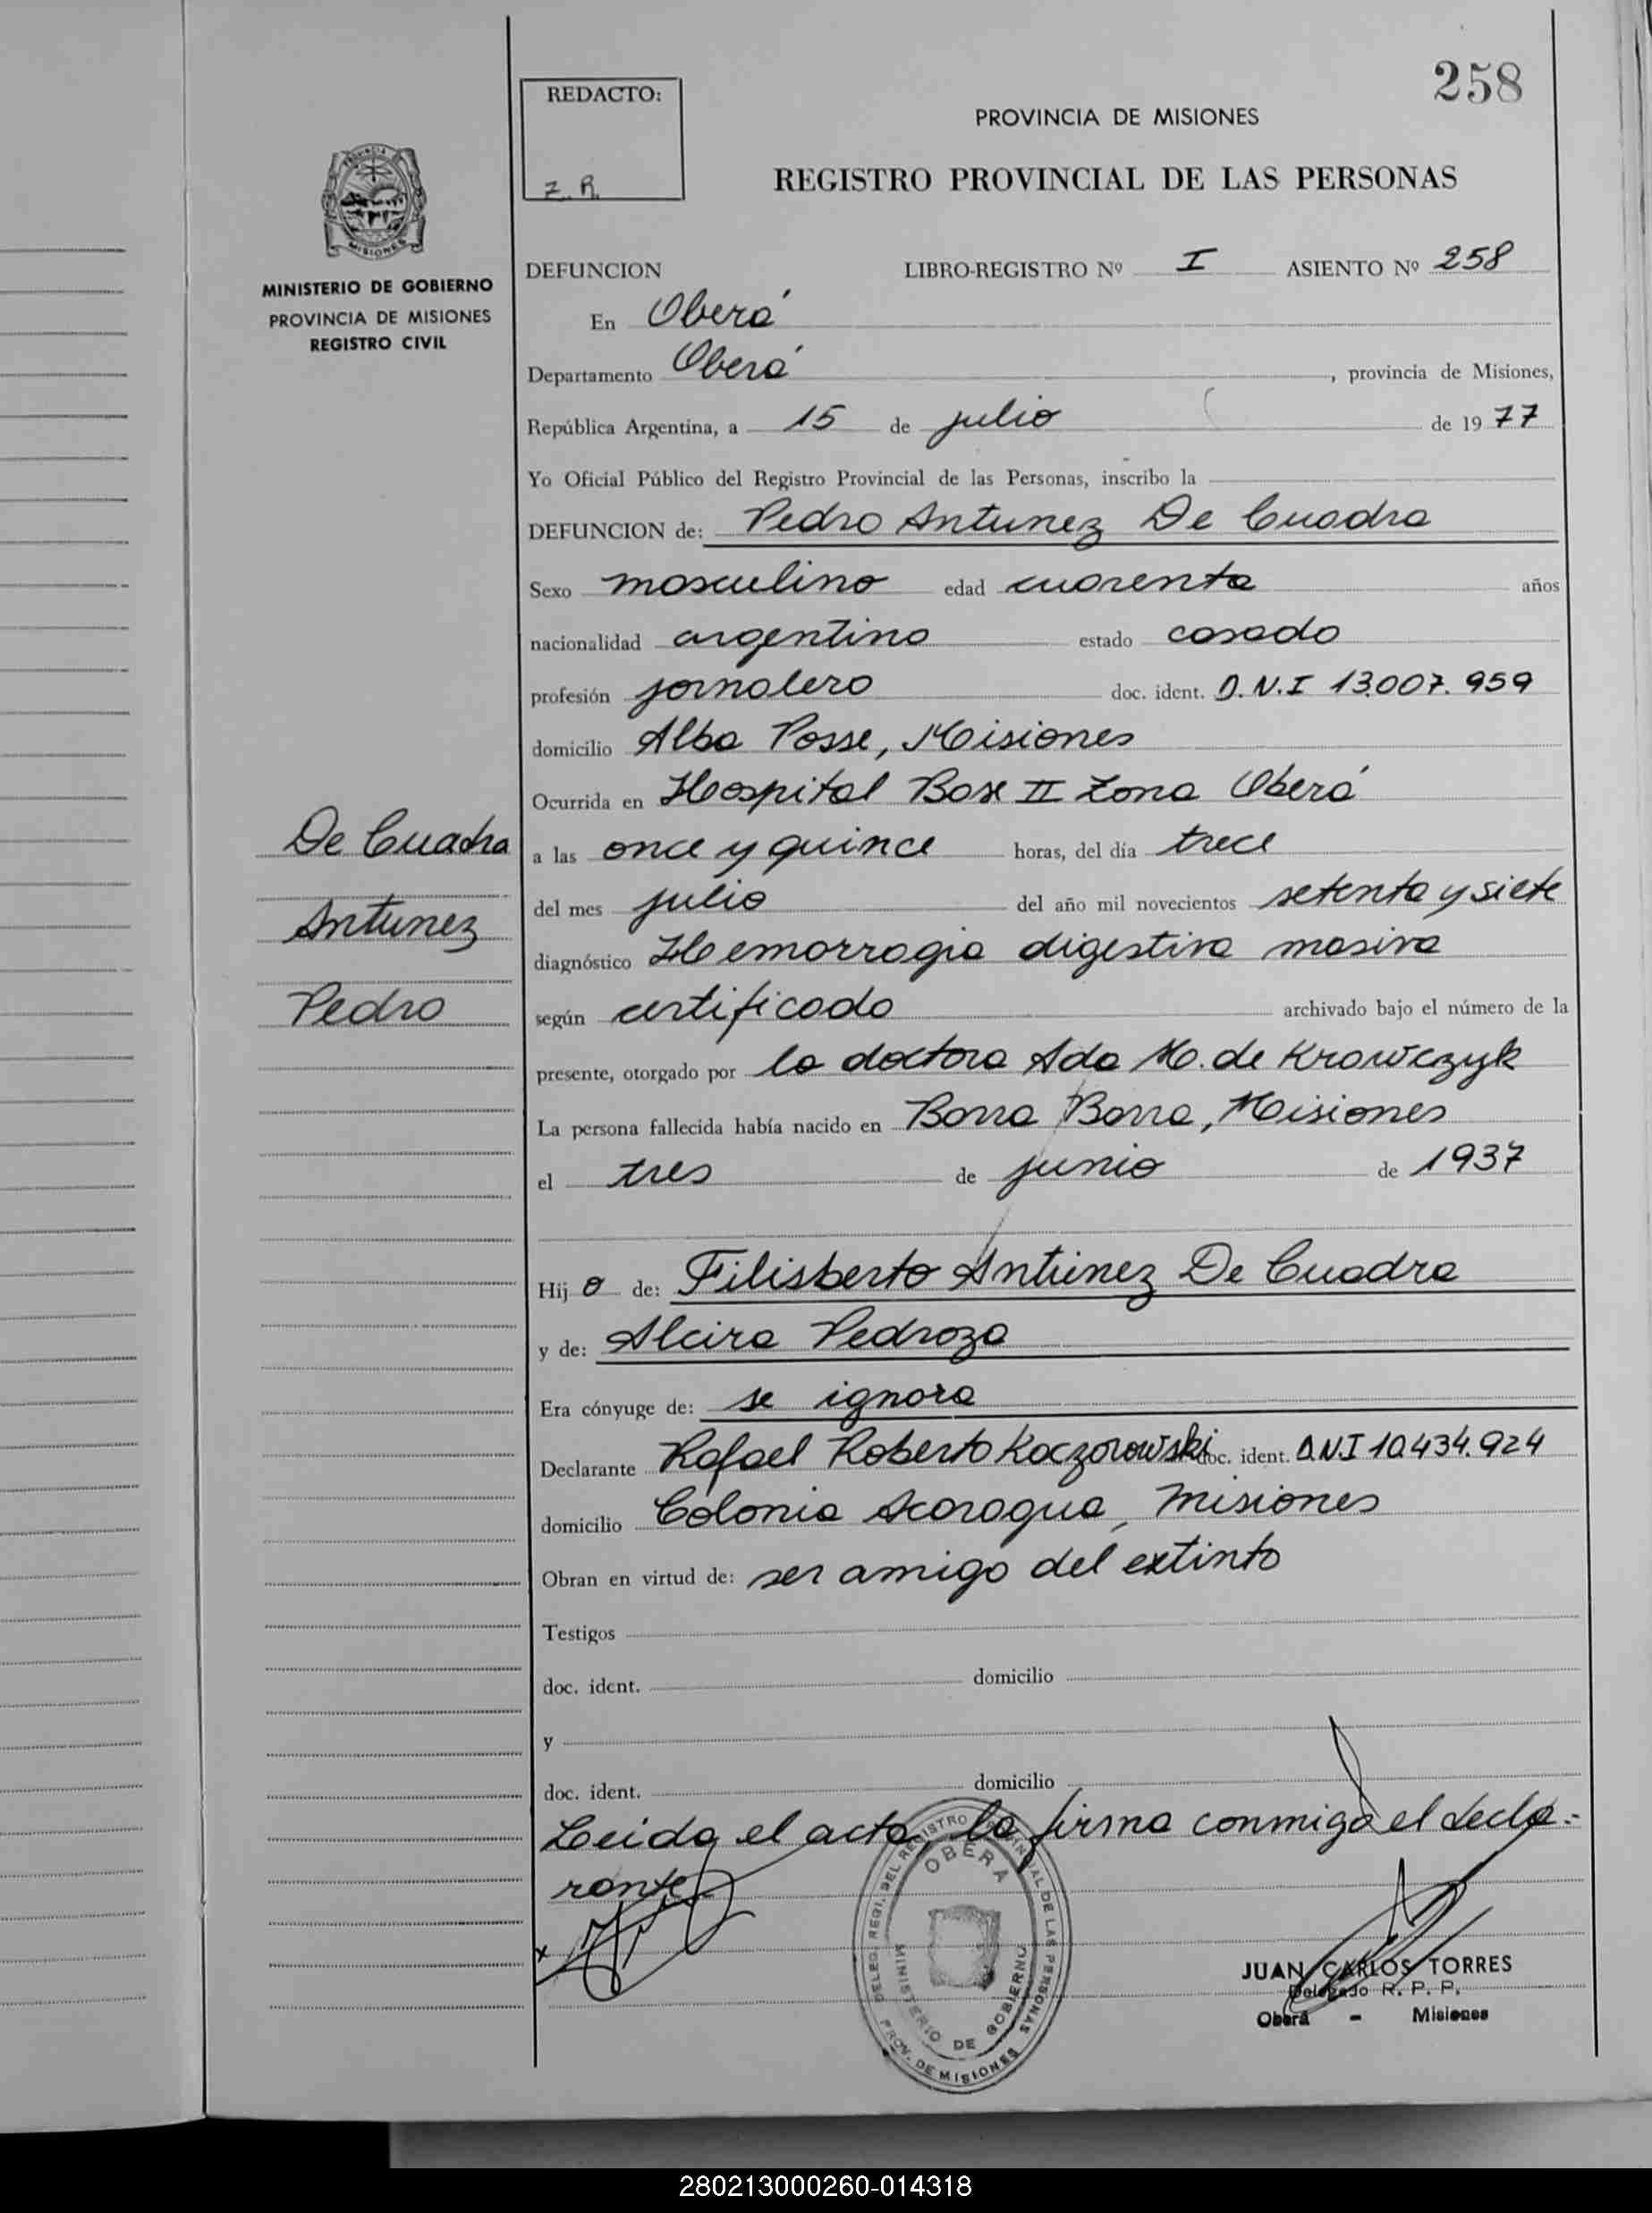 258
REDACTO:
Z. R.
PROVINCIA DE MISIONES
REGISTRO PROVINCIAL DE LAS PERSONAS
MISIONES
MINISTERIO DE GOBIERNO
PROVINCIA DE MISIONES
REGISTRO CIVIL
DEFUNCION LIBRO-REGISTRO Nº I ASIENTO Nº 258
En Oberá
Departamento Oberá, provincia de Misiones,
República Argentina, a 15 de julio de 1977
Yo Oficial Público del Registro Provincial de las Personas, inscribo la
DEFUNCION de: Pedro Antunez De Cuadra
Sexo masculino edad cuarenta años
nacionalidad argentino estado casado
profesión jornalero doc. ident. D.N.I 13.007.959
domicilio Alba Posse, Misiones
Ocurrida en Hospital Base II Zona Oberá
De Cuadra
Antunez
Pedro
a las once y quince horas, del día trece
del mes julio del año mil novecientos setenta y siete
diagnóstico Hemorragia digestiva masiva
según certificado archivado bajo el número de la
presente, otorgado por la doctora Ada M. de Krawczyk
La persona fallecida había nacido en Borra Borra, Misiones
el tres de junio de 1937
Hijo de: Filisberto Antúnez De Cuadra
y de: Alcira Pedroza
Era cónyuge de: se ignora
Declarante Rafael Roberto Kaczorowski doc. ident. D.N.I 10.434.924
domicilio Colonia Acaragua, Misiones
Obran en virtud de: ser amigo del extinto
Testigos
doc. ident. domicilio
y
doc. ident. domicilio
Leida el acta, la firma conmigo el decla-
rante
x
DELEG. REGI. DEL REGISTRO PROVINCIAL DE LAS PERSONAS
OBERA
MINISTERIO DE GOBIERNO
PROV. DE MISIONES
JUAN CARLOS TORRES
Delegado R. P. P.
Oberá - Misiones
280213000260-014318